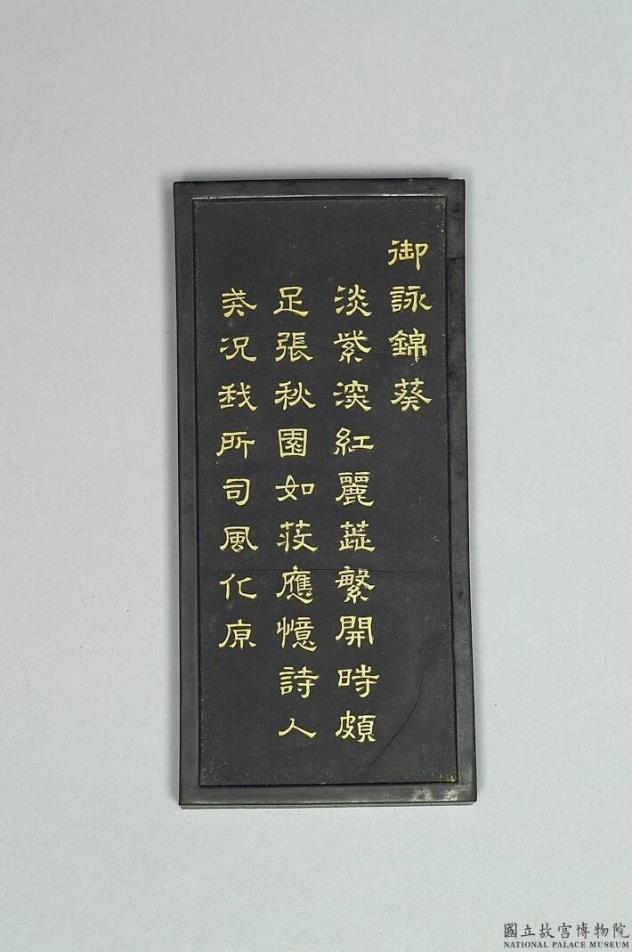 御詠錦葵
淡紫深紅麗蕋繁開時頗
足張秋園如荍應憶詩人
美况我所司風化原
國立故宮博物院
NATIONAL PALACE MUSEUM